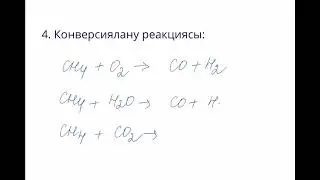 4. Конверсиялану реакциясы:
CH4 + O2 → CO + H2
CH4 + H2O → CO + H
CH4 + CO2 →